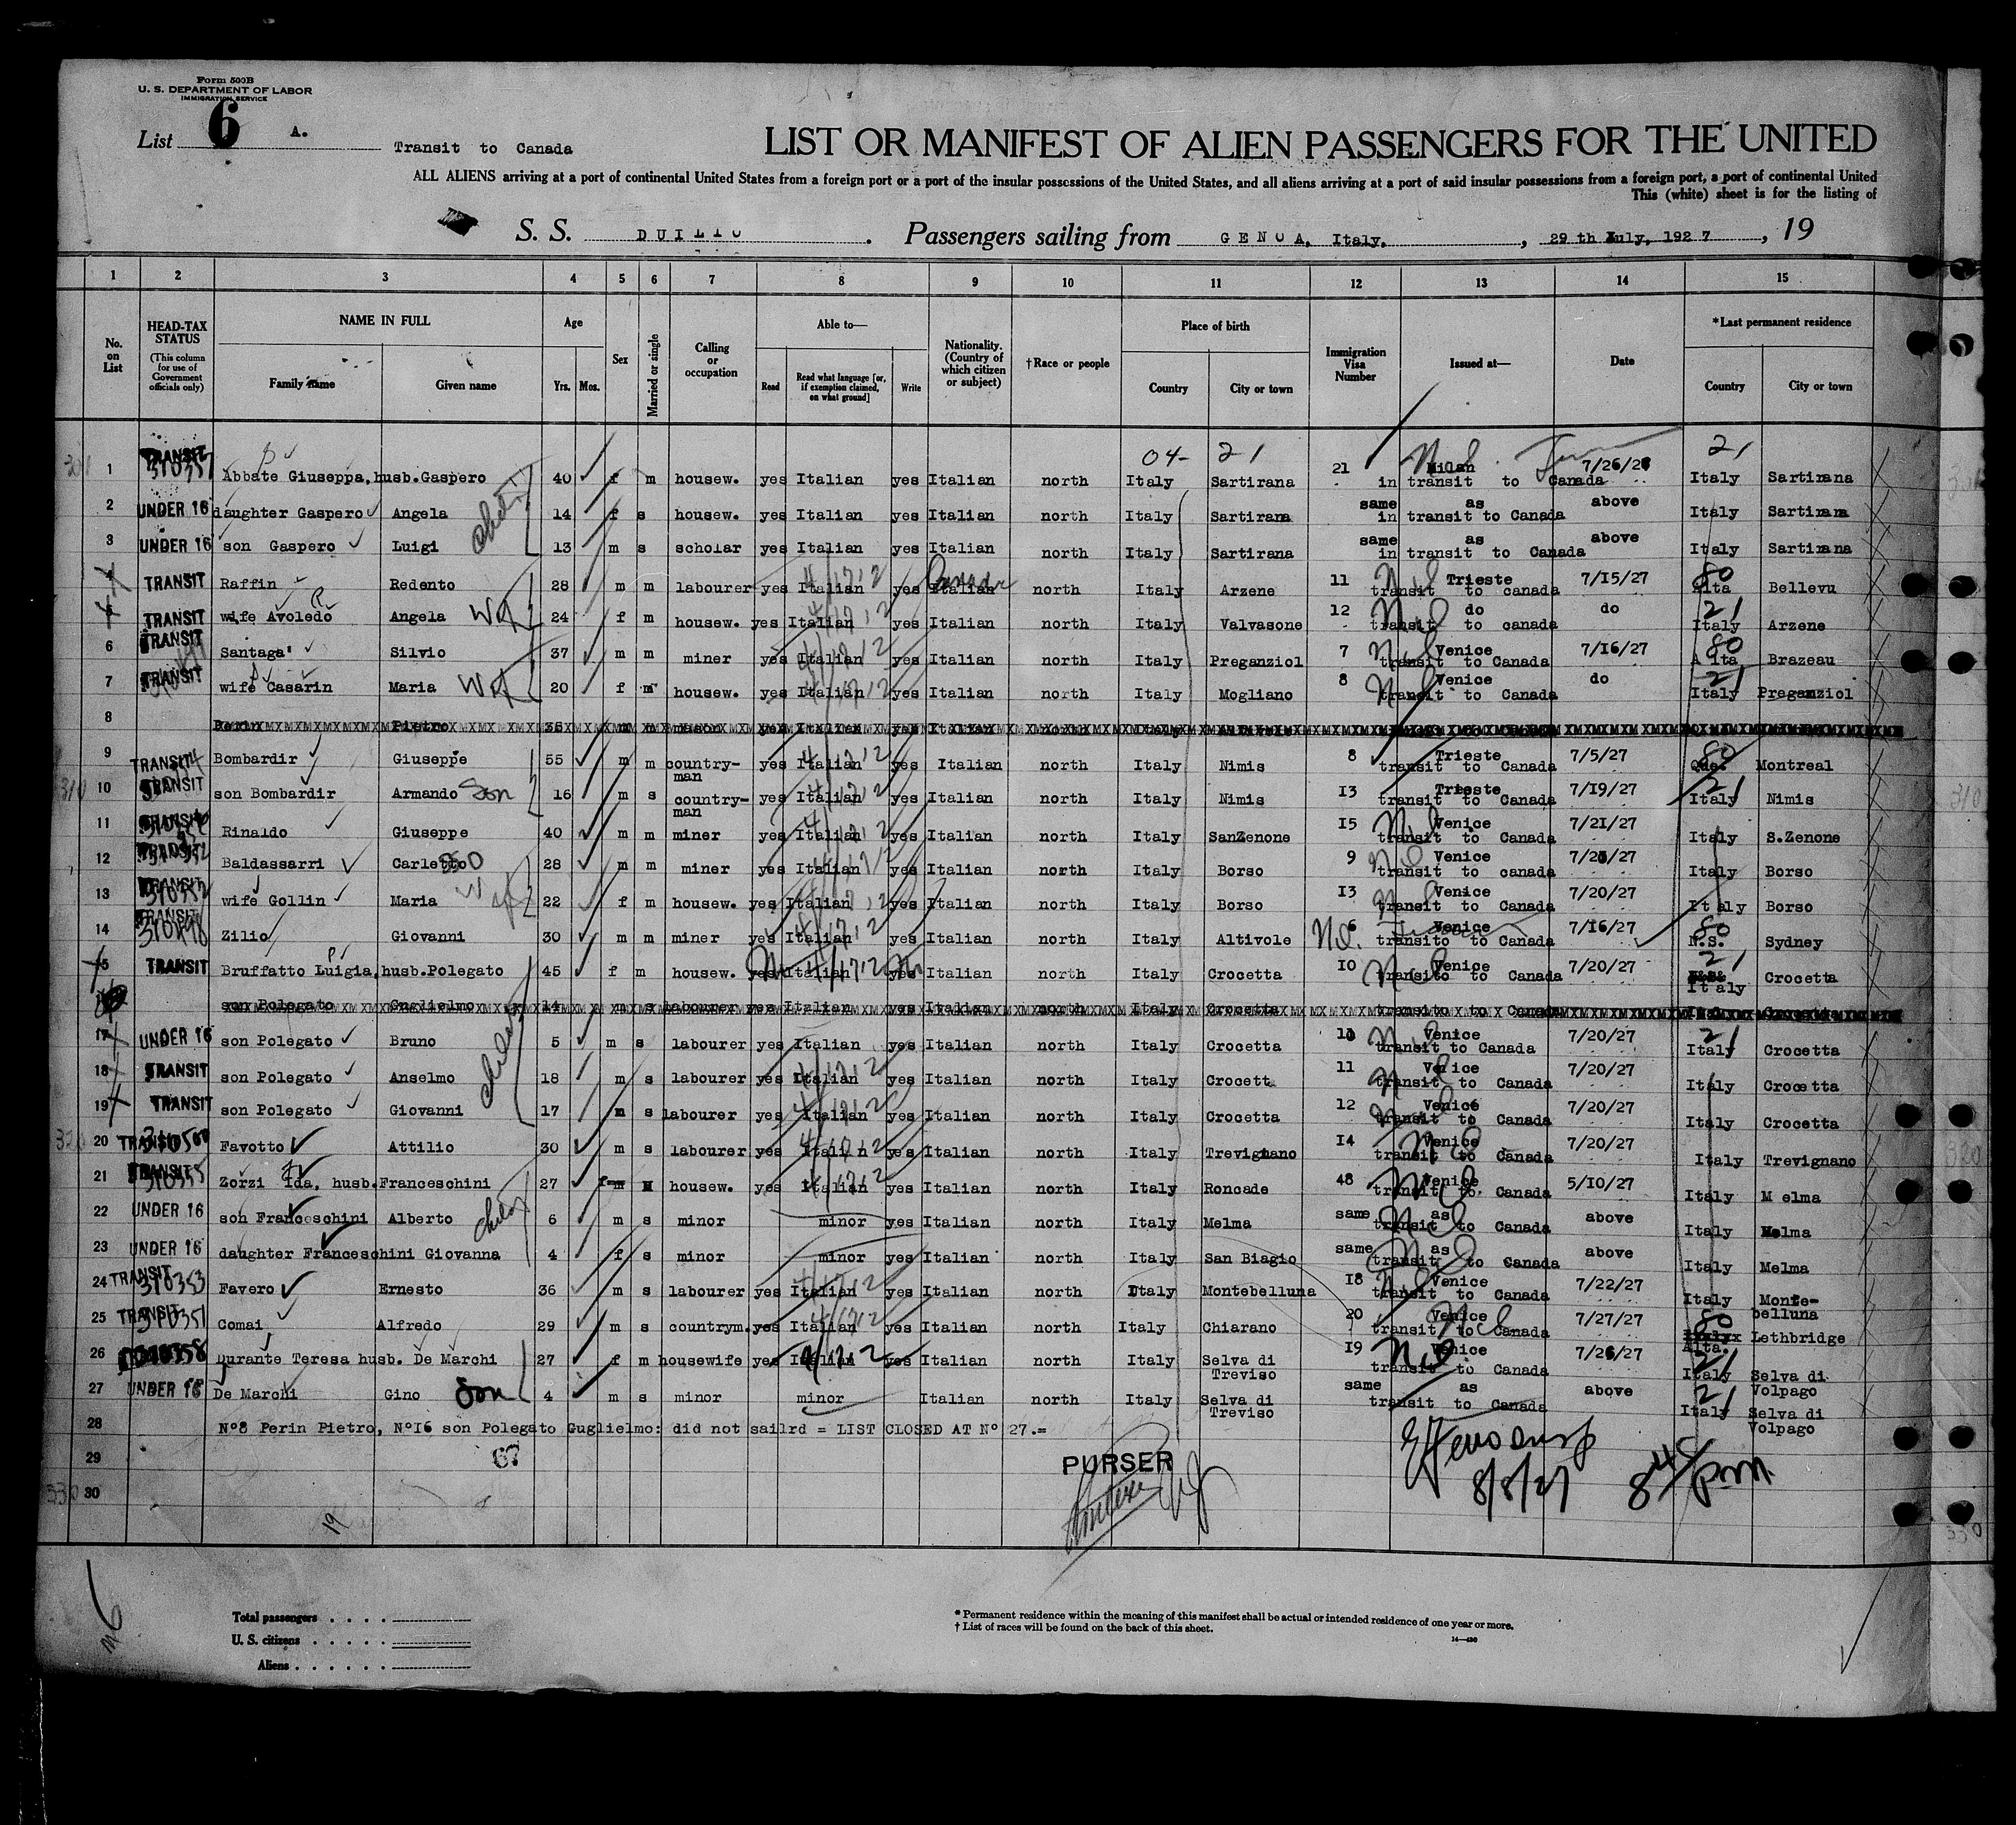 Form 500B
U. S. DEPARTMENT OF LABOR
IMMIGRATION SERVICE
List 6 A.
Transit to Canada
LIST OR MANIFEST OF ALIEN PASSENGERS FOR THE UNITED
ALL ALIENS arriving at a port of continental United States from a foreign port or a port of the insular possessions of the United States, and all aliens arriving at a port of said insular possessions from a foreign port, a port of continental United
This (white) sheet is for the listing of
S. S. DUILIO. Passengers sailing from GENOA, Italy, 29 th July, 1927, 19
1 2 3 4 5 6 7 8 9 10 11 12 13 14 15
No. on List
HEAD-TAX STATUS (This column for use of Government officials only)
NAME IN FULL Family name Given name
Age Yrs. Mos.
Sex
Married or single
Calling or occupation
Able to— Read Read what language [or, if exemption claimed, on what ground] Write
Nationality. (Country of which citizen or subject)
†Race or people
Place of birth Country City or town
Immigration Visa Number
Issued at—
Date
*Last permanent residence Country City or town
04- 21 21
1 TRANSIT 310357 Abbate Giuseppa, husb. Gaspero 40 f m housew. yes Italian yes Italian north Italy Sartirana 21 Milan in transit to Canada 7/26/26 Italy Sartirana
2 UNDER 16 daughter Gaspero Angela 14 f s housew. yes Italian yes Italian north Italy Sartirana same as above in transit to Canada Italy Sartirana
3 UNDER 16 son Gaspero Luigi 13 m s scholar yes Italian yes Italian north Italy Sartirana same as above in transit to Canada Italy Sartirana
4 TRANSIT Raffin Redento 28 m m labourer yes Italian yes Italian Canada north Italy Arzene 11 Trieste transit to canada 7/15/27 80 Alta Bellevu
TRANSIT wife Avoledo Angela Wf 24 f m housew. yes Italian yes Italian north Italy Valvasone 12 do transit to canada do 21 Italy Arzene
6 TRANSIT Santaga' Silvio 37 m m miner yes Italian yes Italian north Italy Preganziol 7 Venice transit to Canada 7/16/27 80 A lta Brazeau
7 TRANSIT wife Casarin Maria Wf 20 f m housew. yes Italian yes Italian north Italy Mogliano 8 Venice transit to Canada do 21 Italy Preganziol
8 Perin Pietro 36 m m mason yes Italian yes Italian north Italy
9 TRANSIT Bombardir Giuseppe 55 m m country-man yes Italian yes Italian north Italy Nimis 8 Trieste transit to Canada 7/5/27 80 Que. Montreal
10 TRANSIT son Bombardir Armando Son 16 m s country-man yes Italian yes Italian north Italy Nimis 13 Trieste transit to Canada 7/19/27 21 Italy Nimis
11 TRANSIT Rinaldo Giuseppe 40 m m miner yes Italian yes Italian north Italy SanZenone 15 Venice transit to Canada 7/21/27 Italy S.Zenone
12 TRANSIT Baldassarri Carletto 28 m m miner yes Italian yes Italian north Italy Borso 9 Venice transit to canada 7/20/27 Italy Borso
13 TRANSIT 310352 wife Gollin Maria 22 f m housew. yes Italian yes Italian north Italy Borso 13 Venice transit to Canada 7/20/27 Italy Borso
14 TRANSIT 310498 Zilio Giovanni 30 m m miner yes Italian yes Italian north Italy Altivole 6 Venice transito to Canada 7/16/27 80 N.S. Sydney
15 TRANSIT Bruffatto Luigia, husb. Polegato 45 f m housew. yes Italian yes Italian north Italy Crocetta 10 Venice transito to Canada 7/20/27 21 Italy Crocetta
son Polegato Guglielmo 14 m s labourer yes Italian yes Italian north Italy Crocetta transito to Canada Italy Crocetta
17 UNDER 16 son Polegato Bruno 5 m s labourer yes Italian yes Italian north Italy Crocetta 10 Venice transit to Canada 7/20/27 21 Italy Crocetta
18 TRANSIT son Polegato Anselmo 18 m s labourer yes Italian yes Italian north Italy Crocett 11 Venice transit to Canada 7/20/27 Italy Crocetta
19 TRANSIT son Polegato Giovanni 17 m s labourer yes Italian yes Italian north Italy Crocetta 12 Venice transit to Canada 7/20/27 Italy Crocetta
20 TRANSIT Favotto Attilio 30 m s labourer yes Italian yes Italian north Italy Trevignano 14 Venice transit to Canada 7/20/27 Italy Trevignano
21 TRANSIT 310355 Zorzi Ida, husb. Franceschini 27 f housew. yes Italian yes Italian north Italy Roncade 48 Venice transit to Canada 5/10/27 Italy M elma
22 UNDER 16 son Franceschini Alberto 6 m s minor minor yes Italian north Italy Melma same as above transit to Canada Italy Melma
23 UNDER 16 daughter Franceschini Giovanna 4 f s minor minor yes Italian north Italy San Biagio same as above transit to Canada Italy Melma
24 TRANSIT 310353 Favero Ernesto 36 m s labourer yes Italian yes Italian north Italy Montebelluna 18 Venice transit to Canada 7/22/27 Italy Monte-belluna
25 TRANSIT 310351 Comai Alfredo 29 m s countrym. yes Italian yes Italian north Italy Chiarano 20 Venice transit to Canada 7/27/27 80 Alta. Lethbridge
26 Durante Teresa husb. De Marchi 27 f m housewife yes Italian yes Italian north Italy Selva di Treviso 19 Venice transit to Canada 7/26/27 21 Italy Selva di Volpago
27 UNDER 16 De Marchi Gino Son 4 m s minor minor Italian north Italy Selva di Treviso same as above transit to Canada 21 Italy Selva di Volpago
28 N°8 Perin Pietro, N°I6 son Polegato Guglielmo: did not sailrd = LIST CLOSED AT N° 27.=
29 67
30
PURSER
8/8/27 8 45 pm
Total passengers
U. S. citizens
Aliens
* Permanent residence within the meaning of this manifest shall be actual or intended residence of one year or more.
† List of races will be found on the back of this sheet.